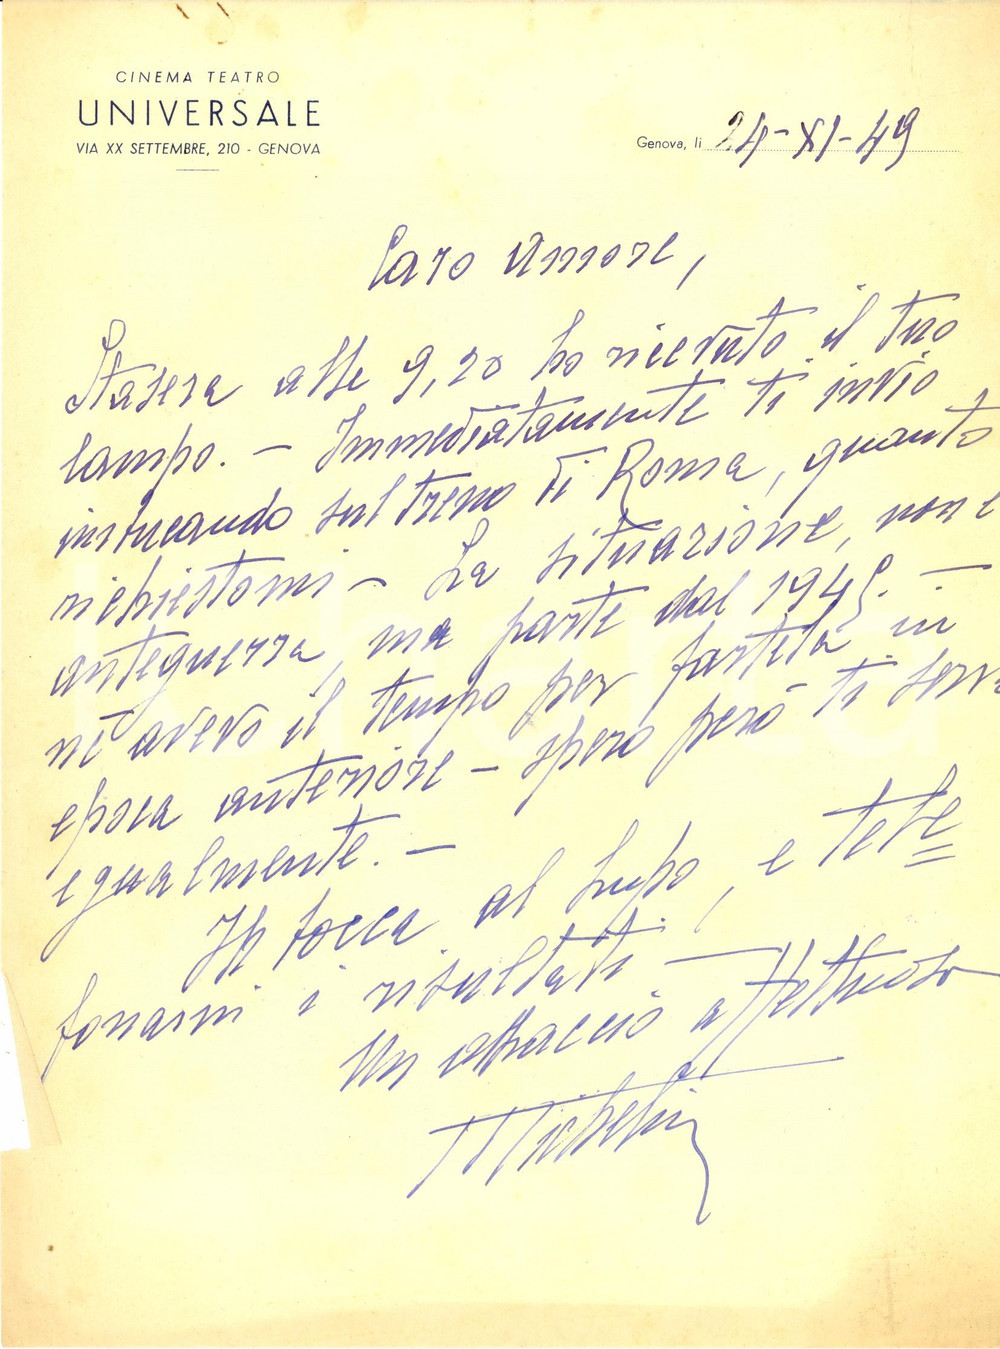 CINEMA TEATRO
UNIVERSALE
VIA XX SETTEMBRE, 210 - GENOVA
Genova, li 24-XI-49
Caro Amore,
Stasera alle 9,20 ho ricevuto il tuo
lampo. - Immediatamente ti invio
imbucando sul treno di Roma, quanto
richiestomi - La situazione, non è
anteguerra, ma parte dal 1945. -
nè avevo il tempo per fartela in
epoca anteriore - spero però ti serva
egualmente. -
In bocca al Lupo, e tele
fonami i risultati. -
Un abbraccio affettuoso